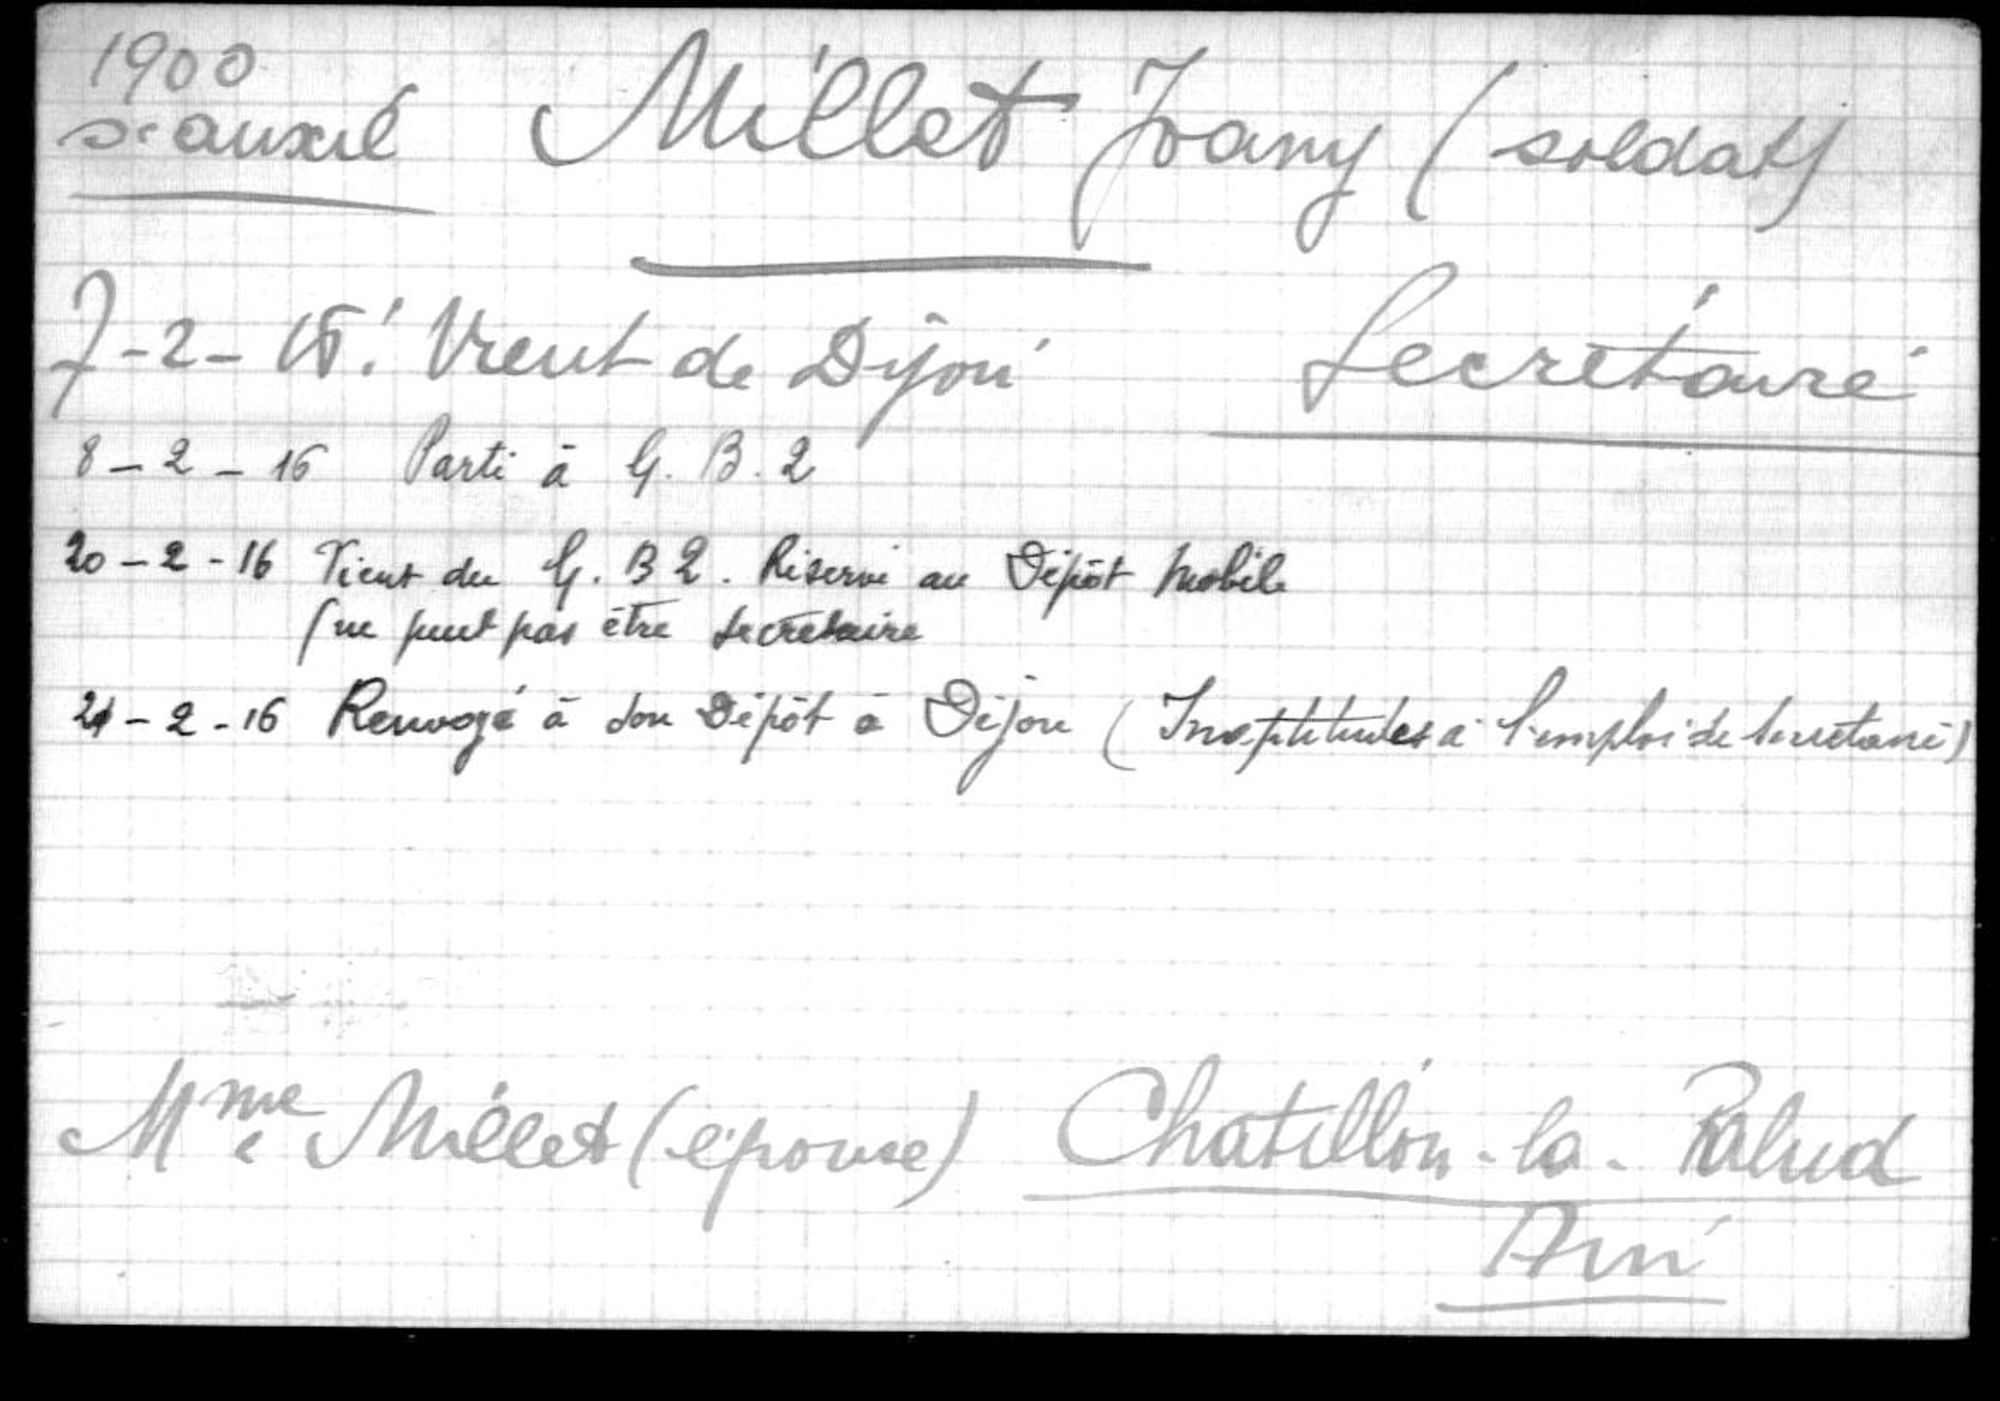 1900
s. auxil Millet Joany (soldat)
7-2-16. Vient de Dijon Secrétaire
8-2-16 Parti à G.B.2
20-2-16 Vient du G.B2. Réservé au Dépôt Mobile
(ne peut pas être secrétaire
21-2-16 Renvoyé à son Dépôt à Dijon (Inaptitudes à l'emploi de secrétaire)
Mme Millet (épouse) Chatillon-la-Palud
Ain